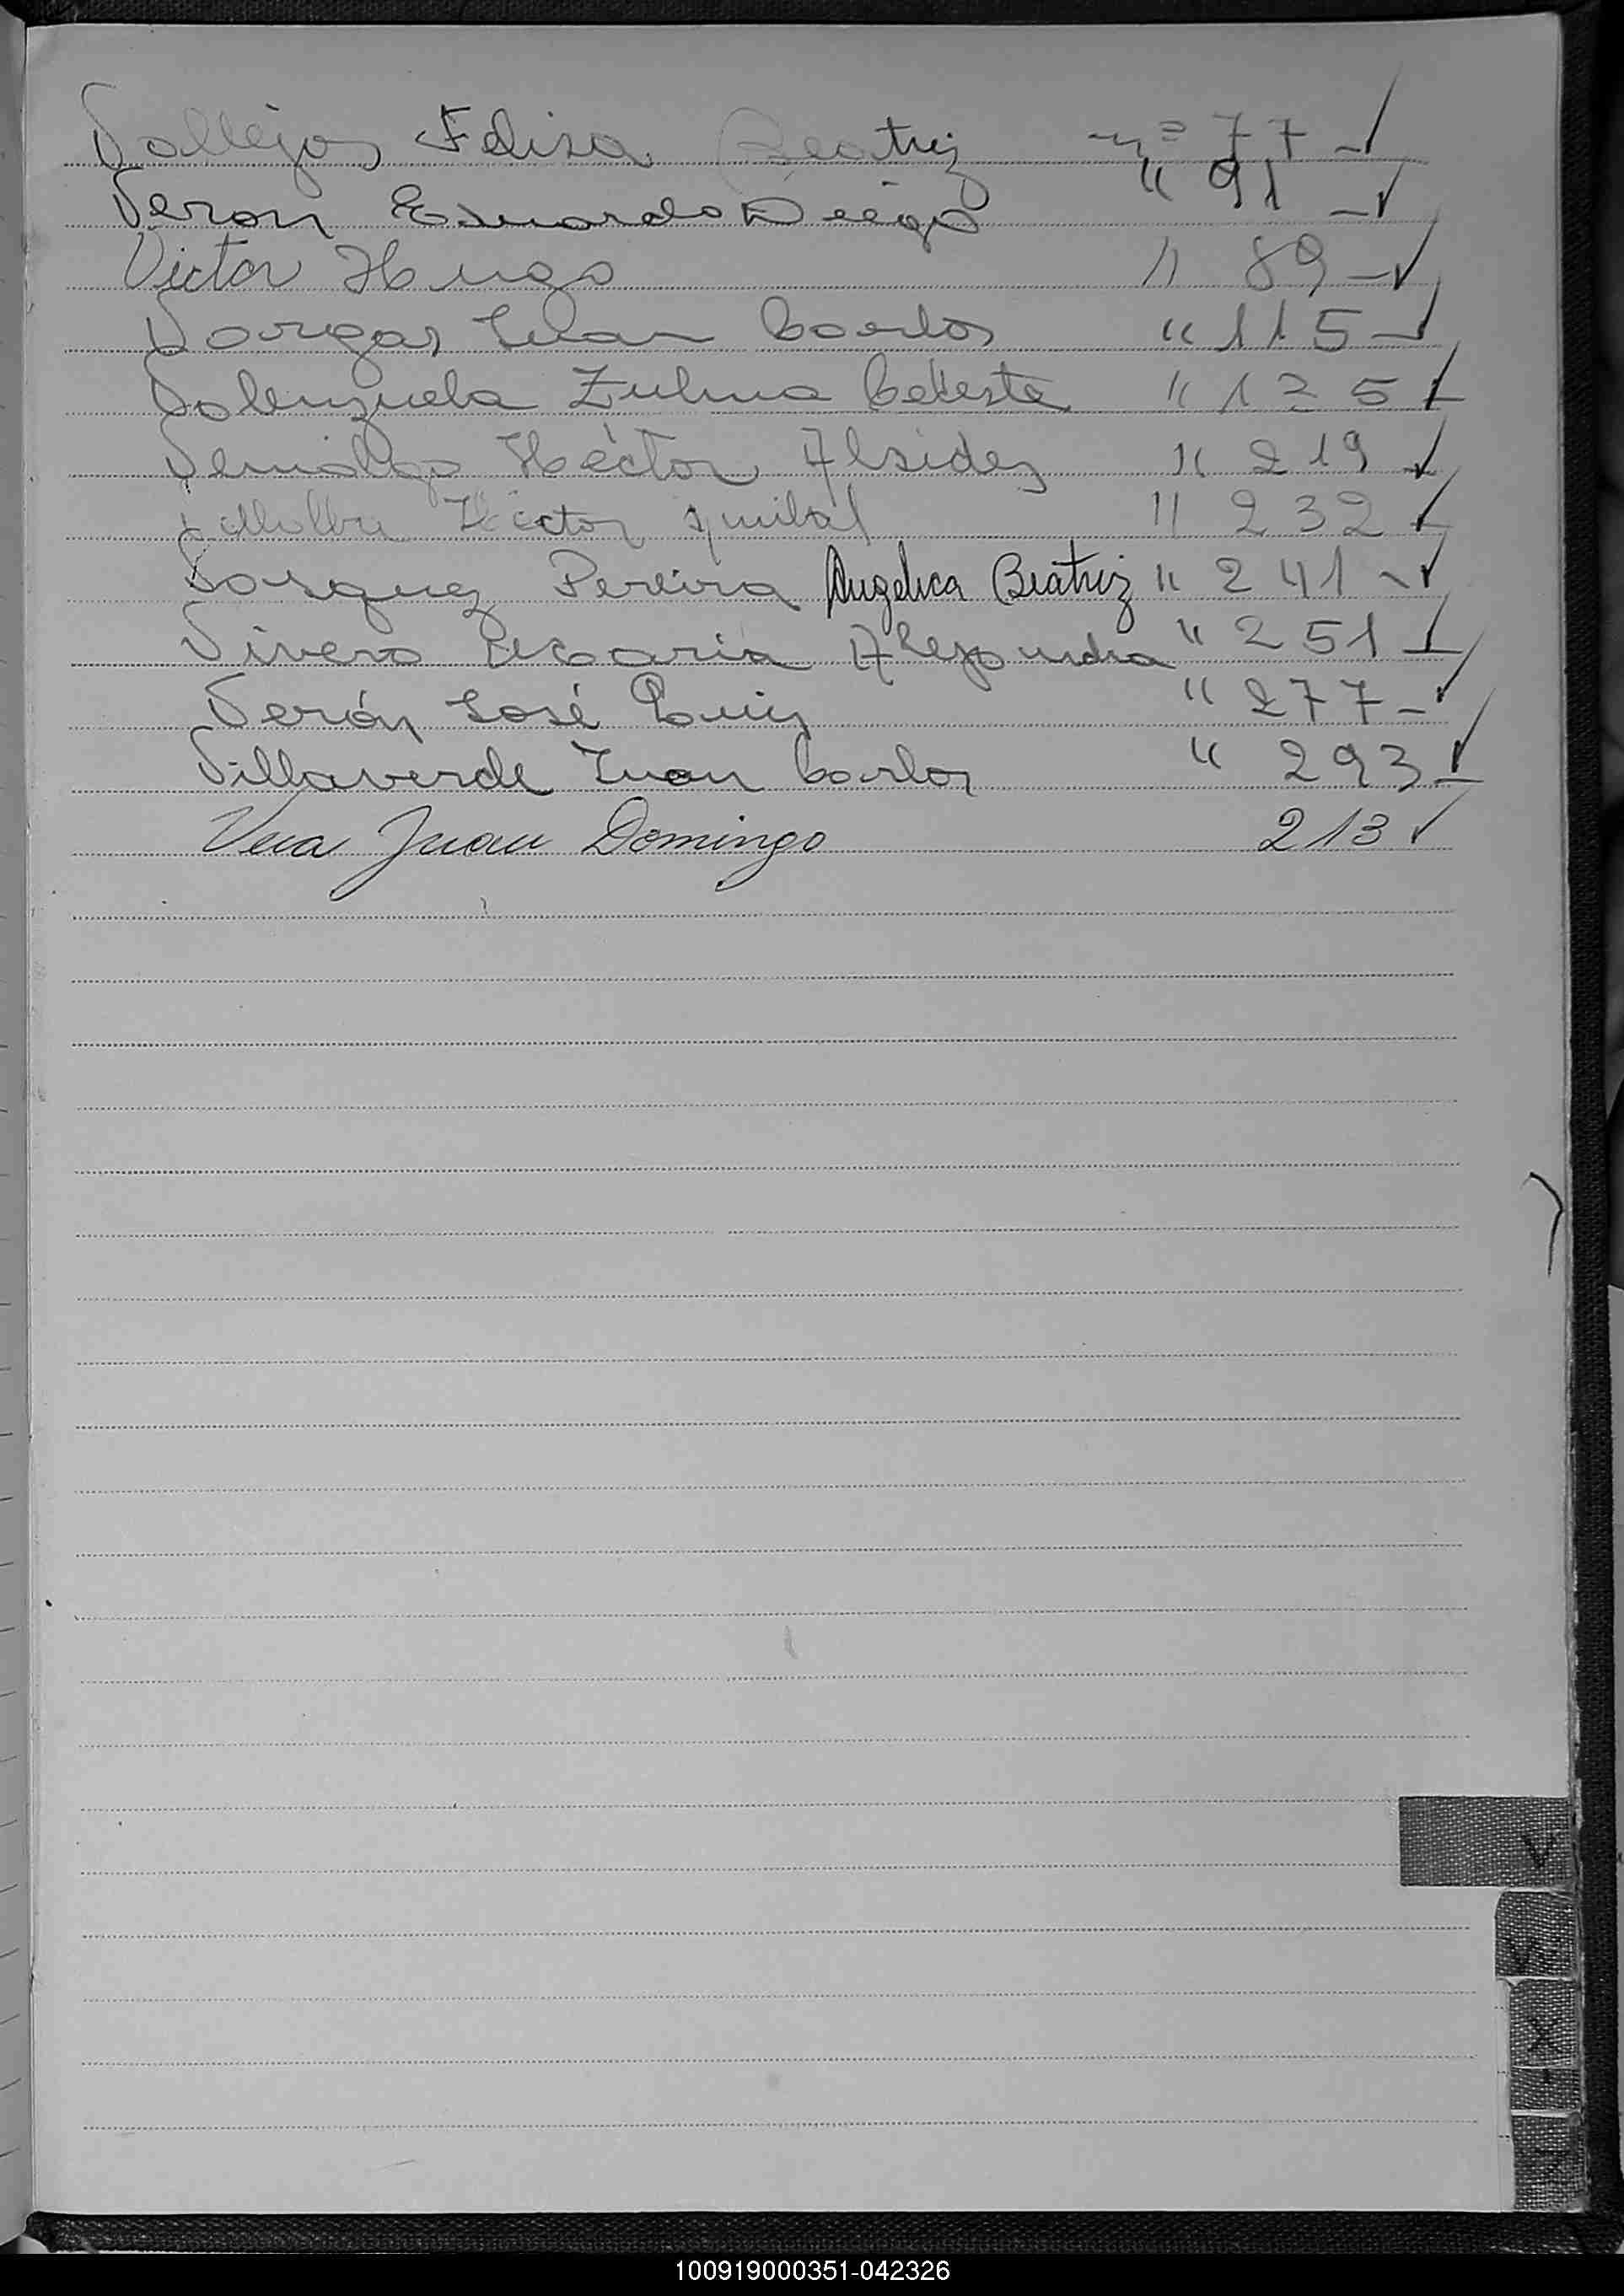 Vallejos Felisa Beatriz nº 77 -✓
Veron Eduardo Diego " 91 -✓
Victor Hugo " 89 -✓
Vargas Juan Carlos " 115 -✓
Valenzuela Zulma Celeste " 135 -✓
Héctor Alsides " 219 -✓
Hector " 232 -✓
Vasquez Pereira Angelica Beatriz " 241 -✓
Vivero Maria Alejandra " 251 -✓
Verón José Luis " 277 -✓
Villaverde Juan Carlos " 293 -✓
Vera Juan Domingo 213 ✓
V
W
X
100919000351-042326